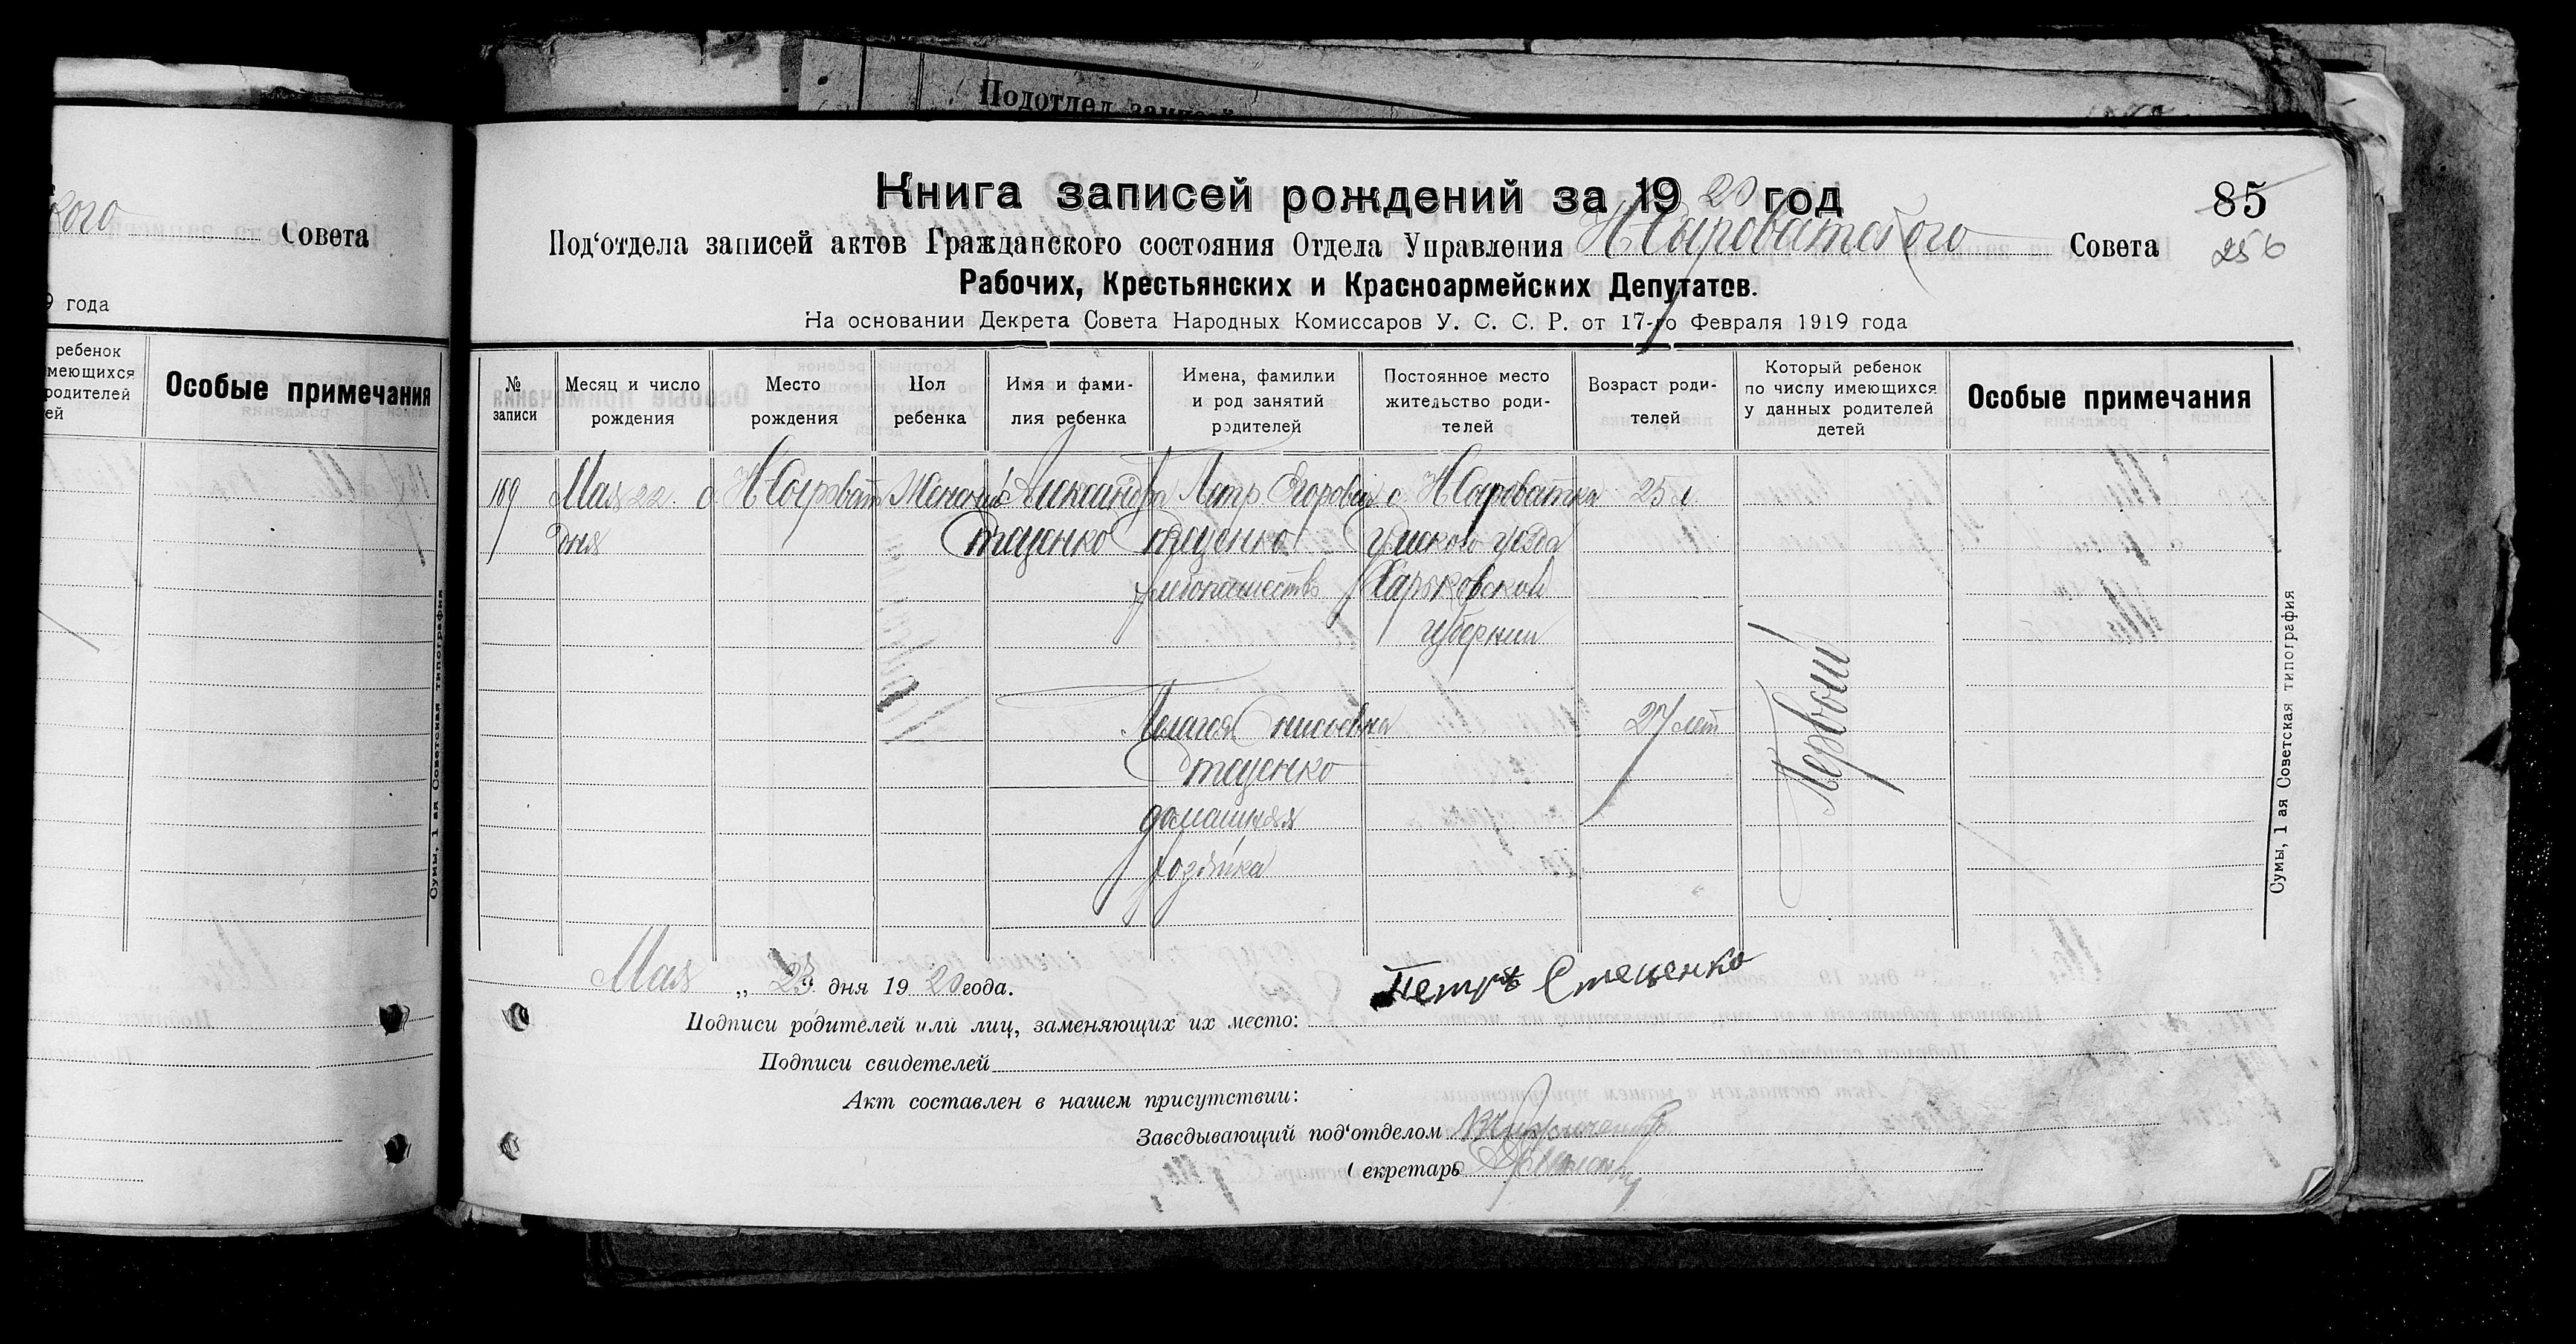 Подотдел записей
кого Совета
9 года
ребенок
меющихся
родителей
ей
Особые примечания
Сумы, 1 ая Советская типография
Книга записей рождений за 1920 год
85
Под‘отдела записей актов Гражданского состояния Отдела Управления Н Сыроватского Совета
256
Рабочих, Крестьянских и Красноармейских Депутатов.
На основании Декрета Совета Народных Комиссаров У. С. С. Р. от 17-го Февраля 1919 года
№ записи
Месяц и число рождения
Место рождения
Пол ребенка
Имя и фамилия ребенка
Имена, фамилии и род занятий родителей
Постоянное место жительство родителей
Возраст родителей
Который ребенок по числу имеющихся у данных родителей детей
Особые примечания
169 Мая 22 с. Н Сыроват Женский Александра Петр Егорович с Н Сыроватка 25 л
дня Стеценко Стеценко Сумского уезда
хлебопашество Харьковской
губернии
Пелагея Анисоевна 27 лет
Стеценко
домашняя
хозяйка
Первый
Мая „ 23 “ дня 1920 года.
Петръ Стеценко
Подписи родителей или лиц, заменяющих их место:
Подписи свидетелей
Акт составлен в нашем присутствии:
Заведывающий под‘отделом
Секретарь
Сумы, 1 ая Советская типография